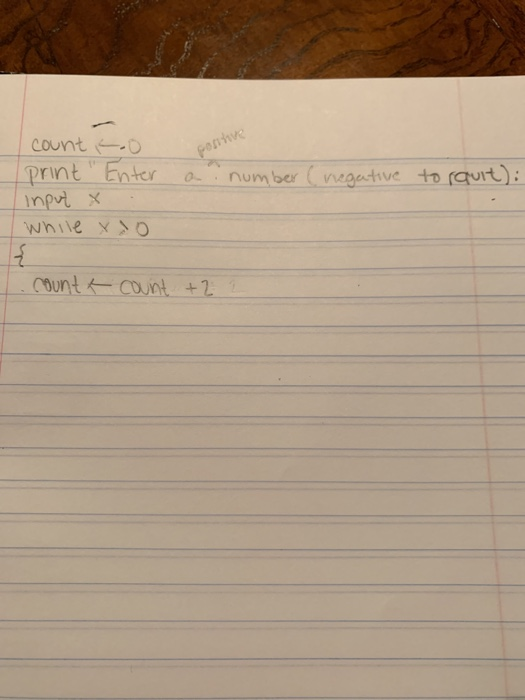 count ← 0
print "Enter a positive number (negative to quit):
input x
while x > 0
{
count ← count + 2